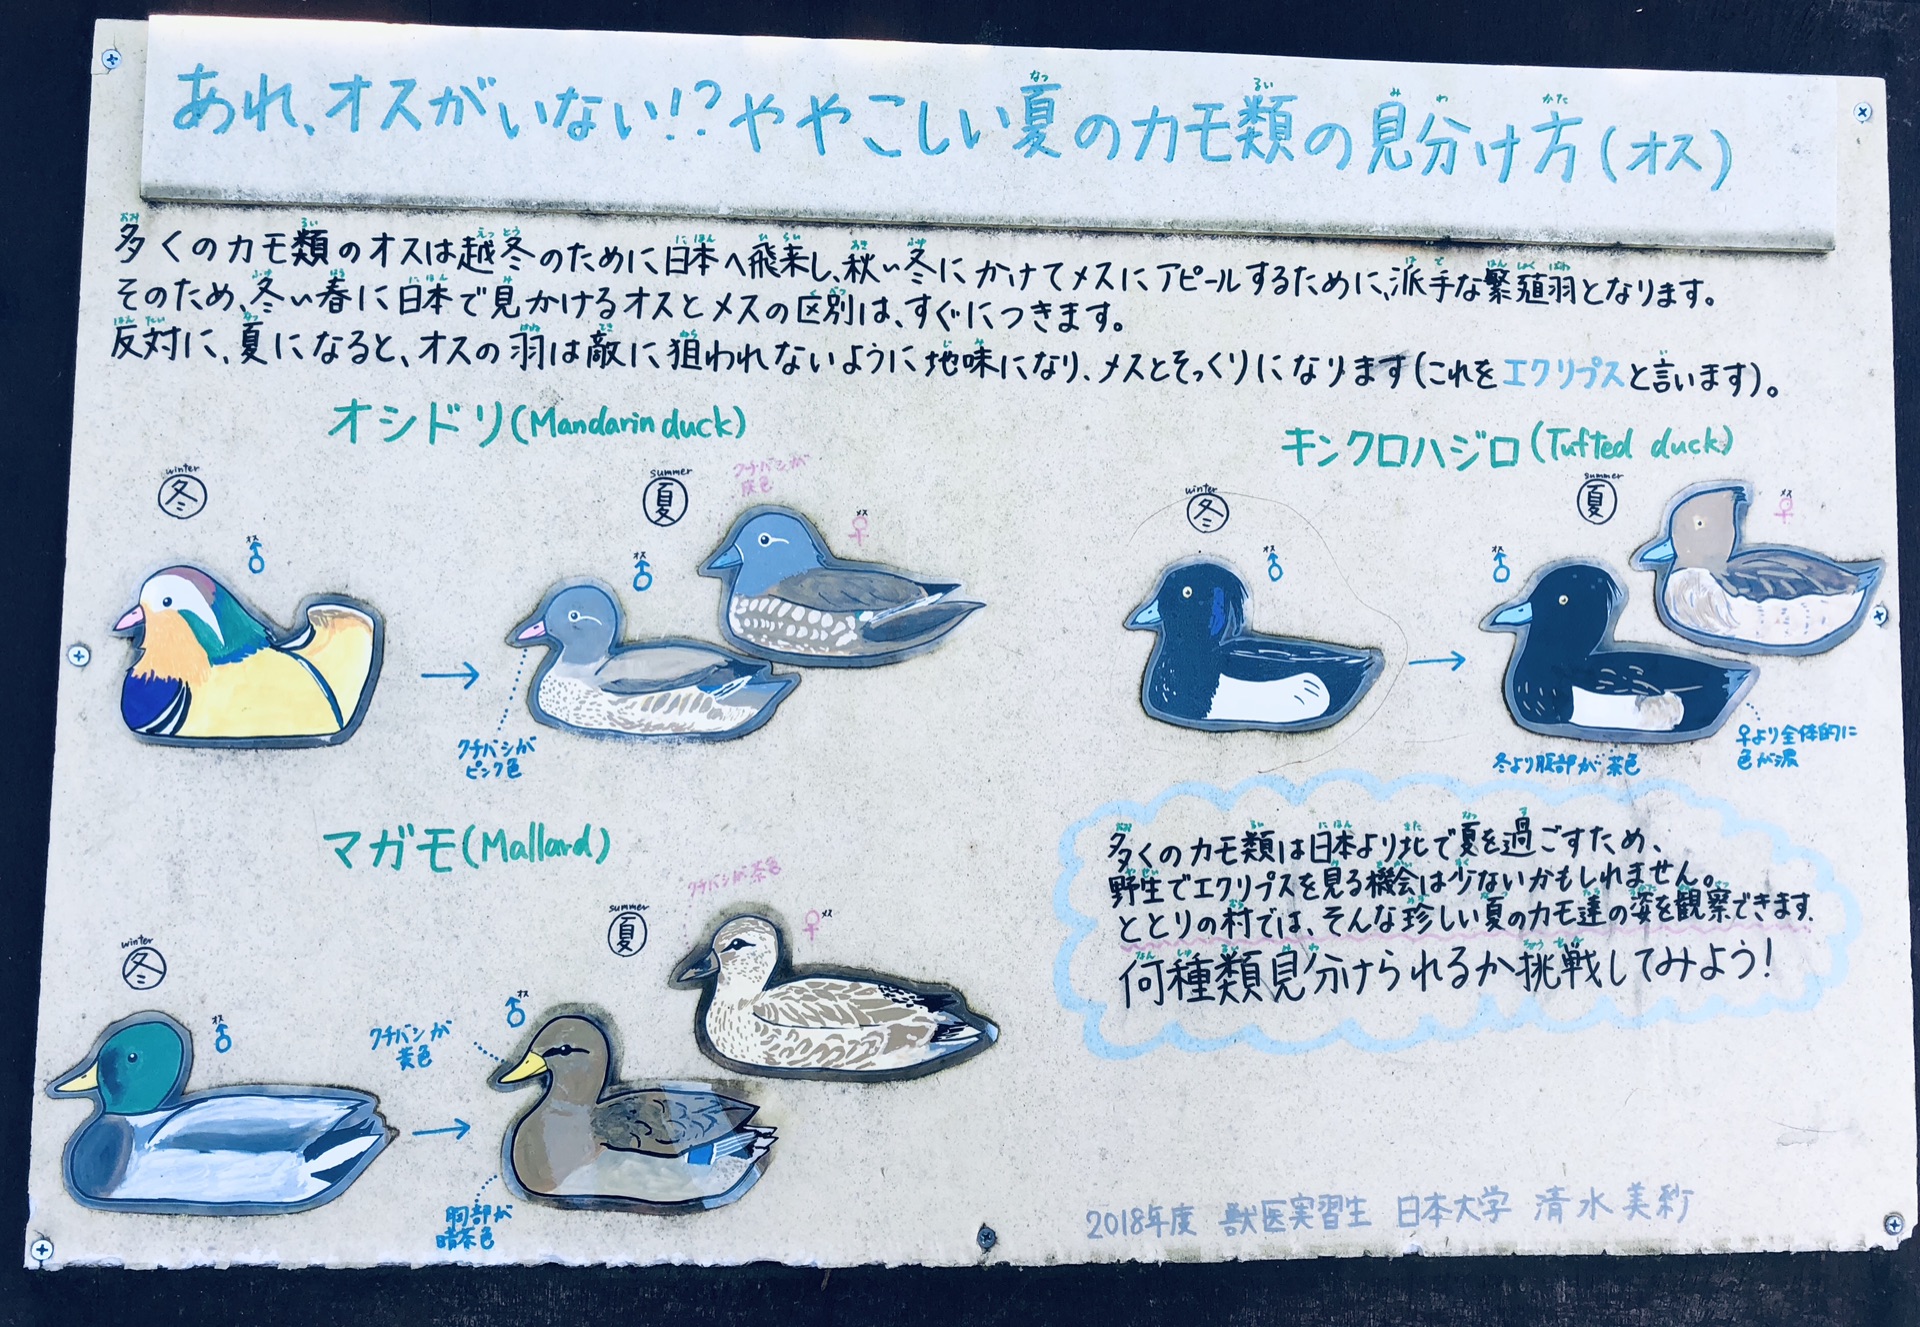 あれ、オスがいない!?ややこしい夏のカモ類の見分け方(オス)
多くのカモ類のオスは越冬のために日本へ飛来し、秋〜冬にかけてメスにアピールするために、派手な繁殖羽となります。
そのため、冬〜春に日本で見かけるオスとメスの区別は、すぐにつきます。
反対に、夏になると、オスの羽は敵に狙われないように地味になり、メスとそっくりになります(これをエクリプスと言います)。
オシドリ(Mandarin duck)
winter
冬
オス
♂
summer
夏
オス
♂
クチバシが
灰色
メス
♀
クチバシが
ピンク色
キンクロハジロ(Tufted duck)
winter
冬
オス
♂
summer
夏
オス
♂
メス
♀
冬より腹部が茶色
♀より全体的に
色が濃
マガモ(Mallard)
winter
冬
オス
♂
summer
夏
オス
♂
クチバシが茶色
メス
♀
クチバシが
黄色
胸部が
暗茶色
多くのカモ類は日本より北で夏を過ごすため、
野生でエクリプスを見る機会は少ないかもしれません。
ととりの村では、そんな珍しい夏のカモ達の姿を観察できます.
何種類見分けられるか挑戦してみよう!
2018年度 獣医実習生 日本大学 清水美彩